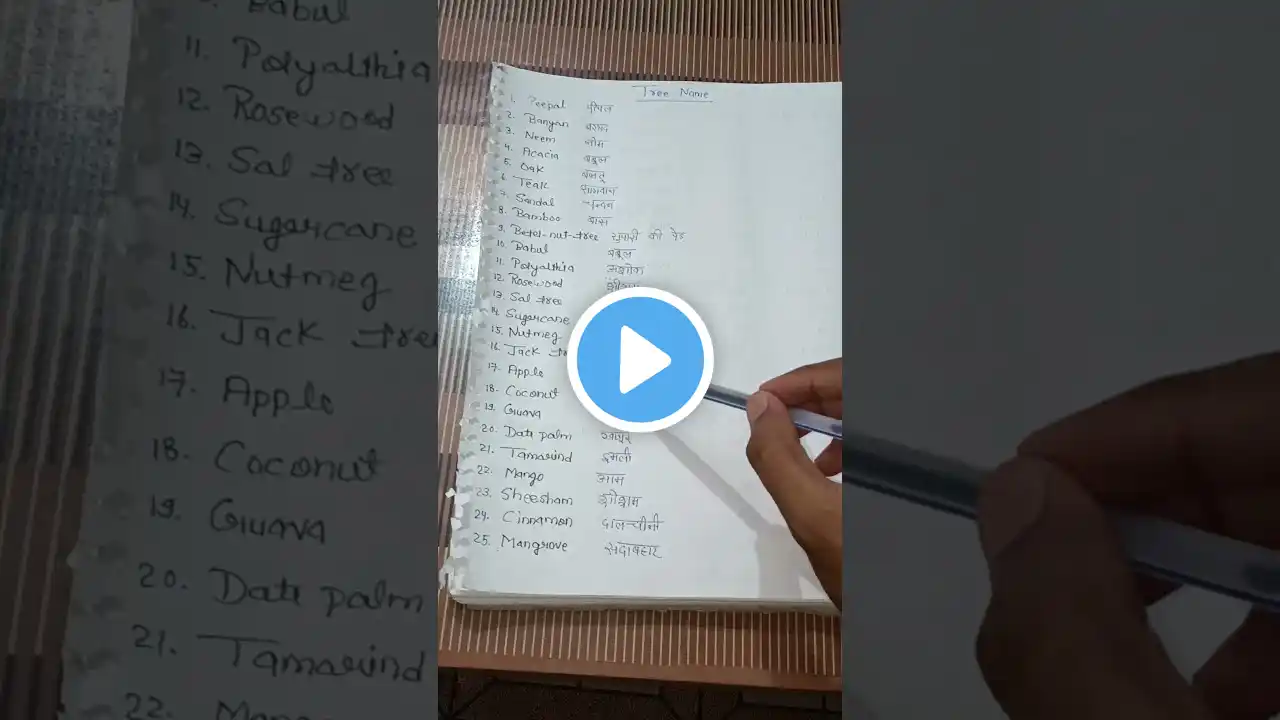 Tree Name
1. Peepal पीपल
2. Banyan बरगद
3. Neem नीम
4. Acacia बबूल
5. Oak बलूत
6. Teak सागवान
7. Sandal चन्दन
8. Bamboo बांस
9. Betel-nut-tree सुपारी की पेड़
10. Babul बबूल
11. Polyalthia अशोक
12. Rosewood शीशम
13. Sal tree
14. Sugarcane
15. Nutmeg
16. Jack
17. Apple
18. Coconut
19. Guava
20. Date palm खजूर
21. Tamarind इमली
22. Mango आम
23. Sheesham शीशम
24. Cinnamon दालचीनी
25. Mangrove सदाबहार
Babul
11. Polyalthia
12. Rosewood
13. Sal tree
14. Sugarcane
15. Nutmeg
16. Jack tree
17. Apple
18. Coconut
19. Guava
20. Date palm
21. Tamarind
22.